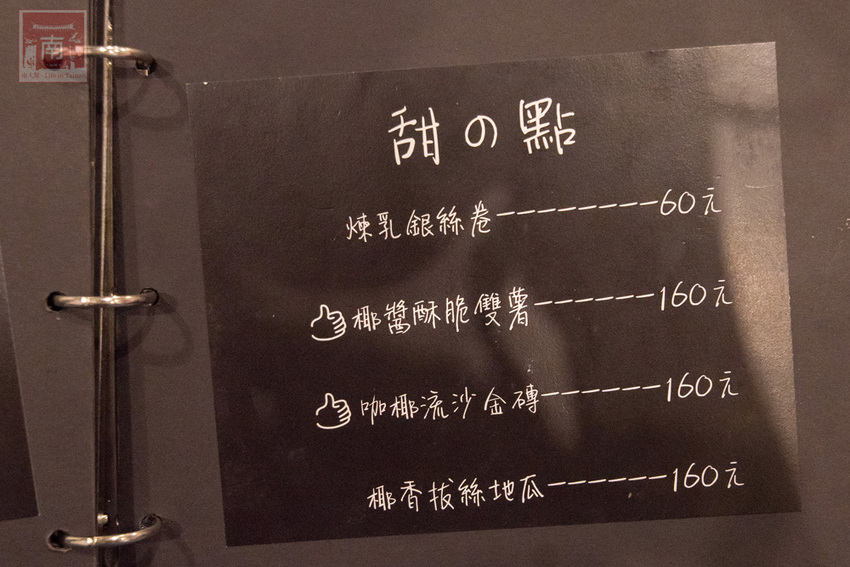 南
Life in Tainan
甜の點
煉乳銀絲卷---------60元
椰醬酥脆雙薯-------160元
咖椰流沙金磚-------160元
椰香拔絲地瓜-------160元